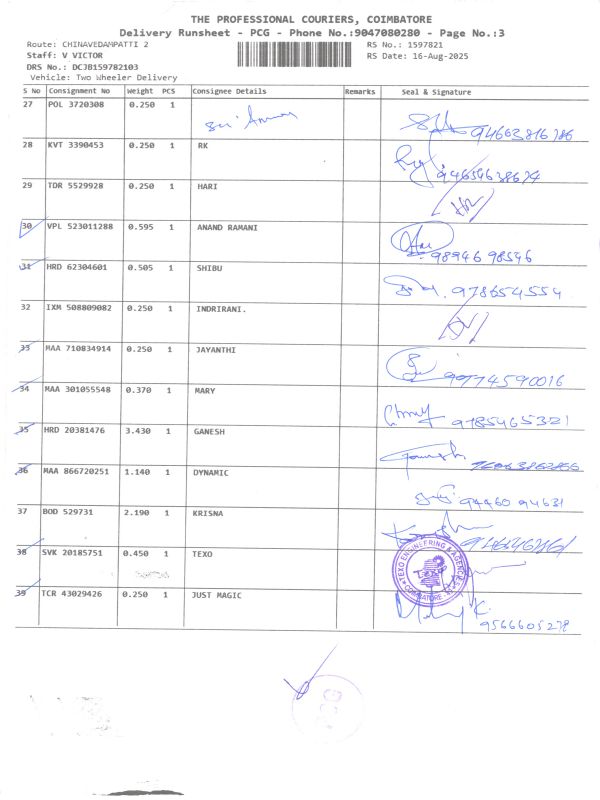 THE PROFESSIONAL COURIERS, COIMBATORE
Delivery Runsheet - PCG - Phone No.:9047080280 - Page No.:3
Route: CHINAVEDAMPATTI 2 RS No.: 1597821
Staff: V VICTOR RS Date: 16-Aug-2025
DRS No.: DCJB159782103
Vehicle: Two Wheeler Delivery
S No Consignment No Weight PCS Consignee Details Remarks Seal & Signature
27 POL 3720308 0.250 1
28 KVT 3390453 0.250 1 RK
29 TDR 5529928 0.250 1 HARI
30 VPL 523011288 0.595 1 ANAND RAMANI 98946 98546
31 HRD 62304601 0.505 1 SHIBU 978654554
32 IXM 508809082 0.250 1 INDRIRANI.
33 MAA 710834914 0.250 1 JAYANTHI
34 MAA 301055548 0.370 1 MARY 9785465321
35 HRD 20381476 3.430 1 GANESH
36 MAA 866720251 1.140 1 DYNAMIC 94460 94631
37 BOD 529731 2.190 1 KRISNA
38 SVK 20185751 0.450 1 TEXO
TEXO ENGINEERING & AGENCIES
COIMBATORE
39 TCR 43029426 0.250 1 JUST MAGIC 9566605278